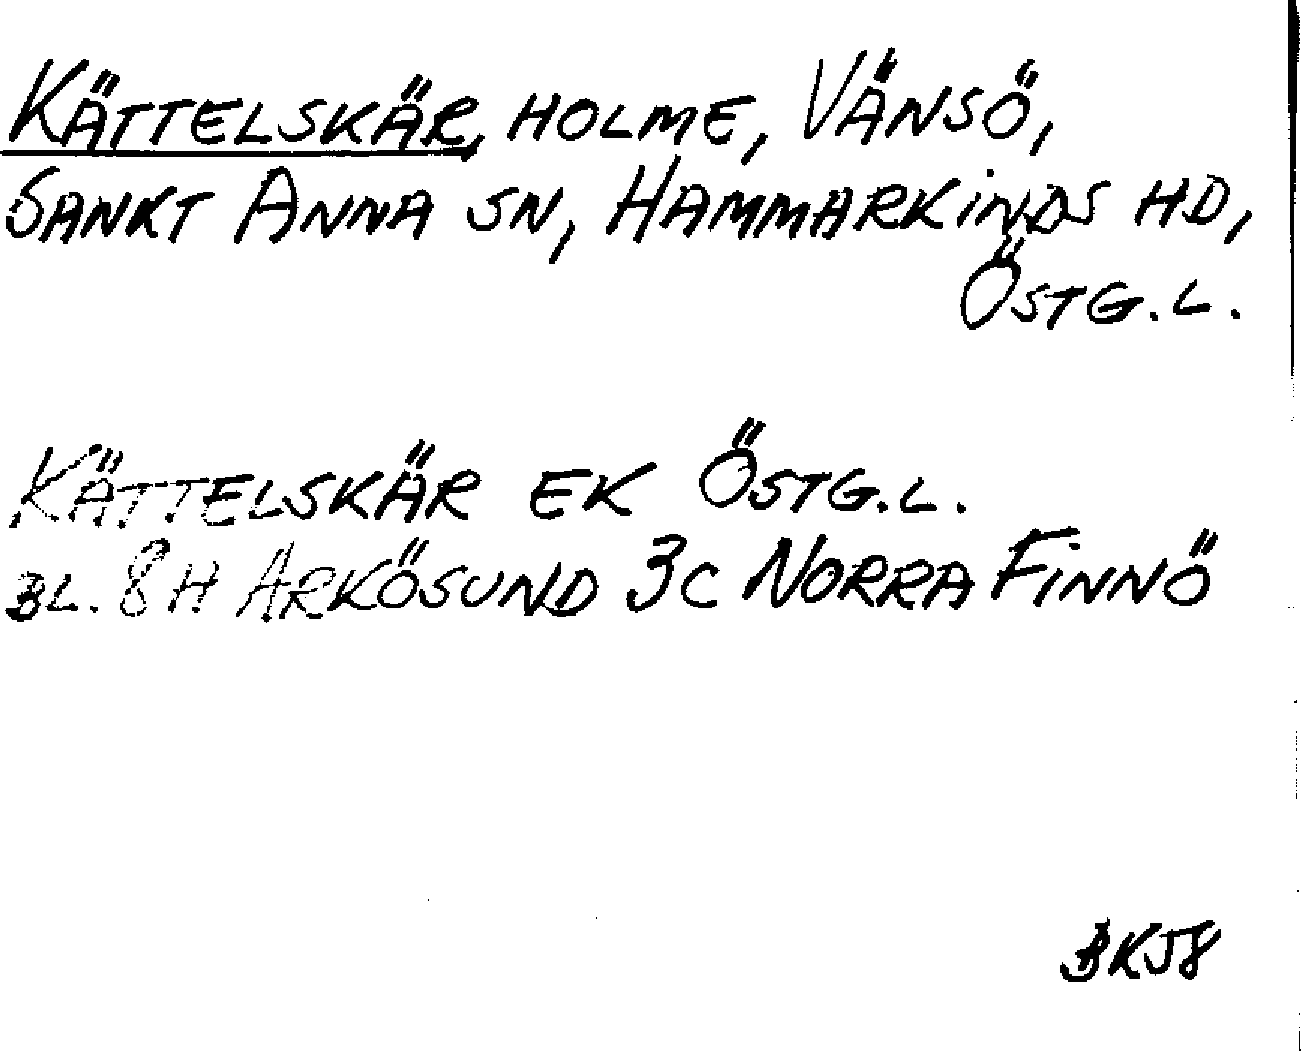 KÄTTELSKÄR, HOLME, VÄNSÖ,
SANKT ANNA SN, HAMMARKINDS HD,
ÖSTG.L.
KÄTTELSKÄR EK ÖSTG.L.
BL. 8H ARKÖSUND 3C NORRA FINNÖ